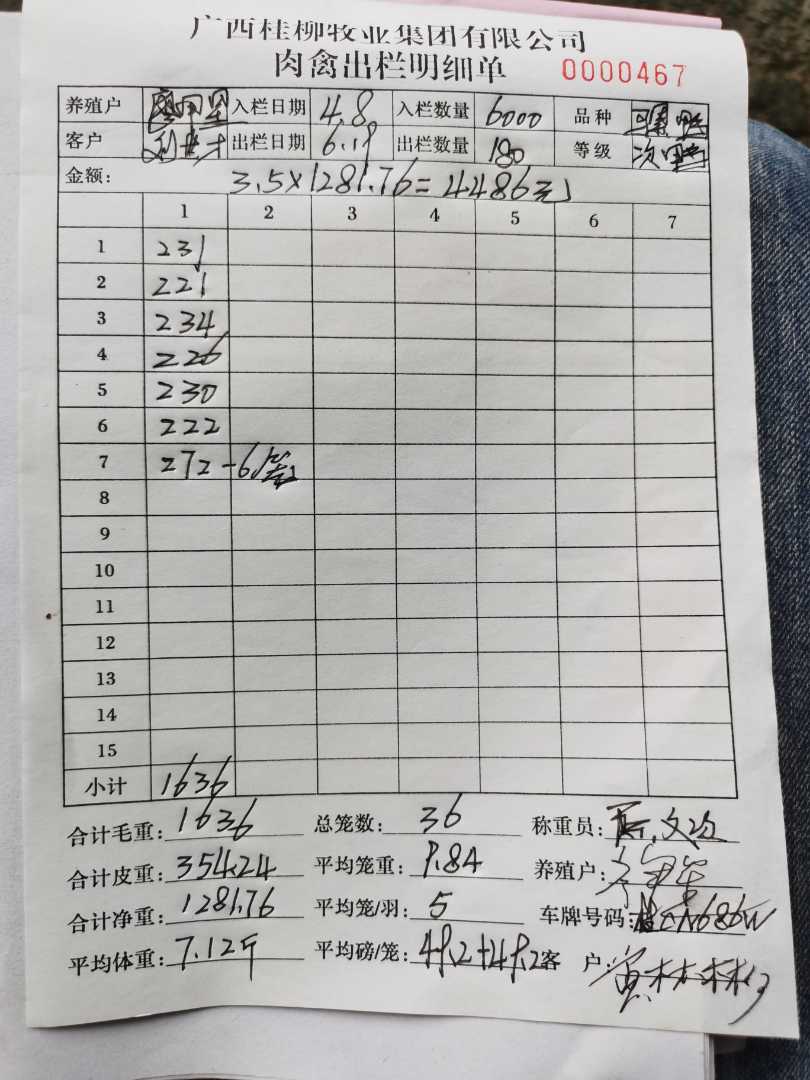 广西桂柳牧业集团有限公司
肉禽出栏明细单 0000467
养殖户 入栏日期 4.8 入栏数量 6000 品种
客户 出栏日期 6.19 出栏数量 180 等级 次鸭
金额: 3.5×1281.76=4486元
1 2 3 4 5 6 7
1 231
2 221
3 234
4 226
5 230
6 222
7 272-6笼
8
9
10
11
12
13
14
15
小计 1636
合计毛重: 1636 总笼数: 36 称重员:
合计皮重: 354.24 平均笼重: 9.84 养殖户:
合计净重: 1281.76 平均笼/羽: 5 车牌号码:
平均体重: 7.12斤 平均磅/笼: 49.2+49.2 客户: